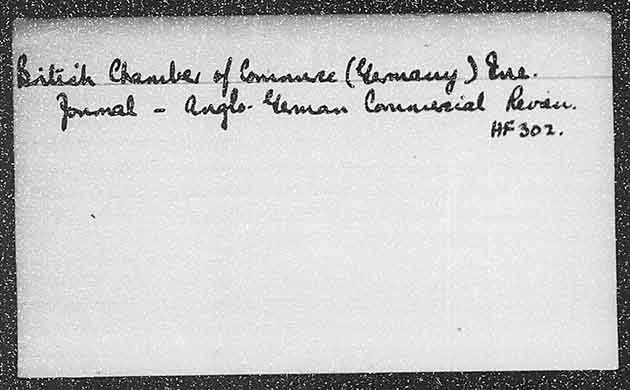 British Chamber of Commerce (Germany) Inc.
Journal - Anglo-German Commercial Review.
HF 302.